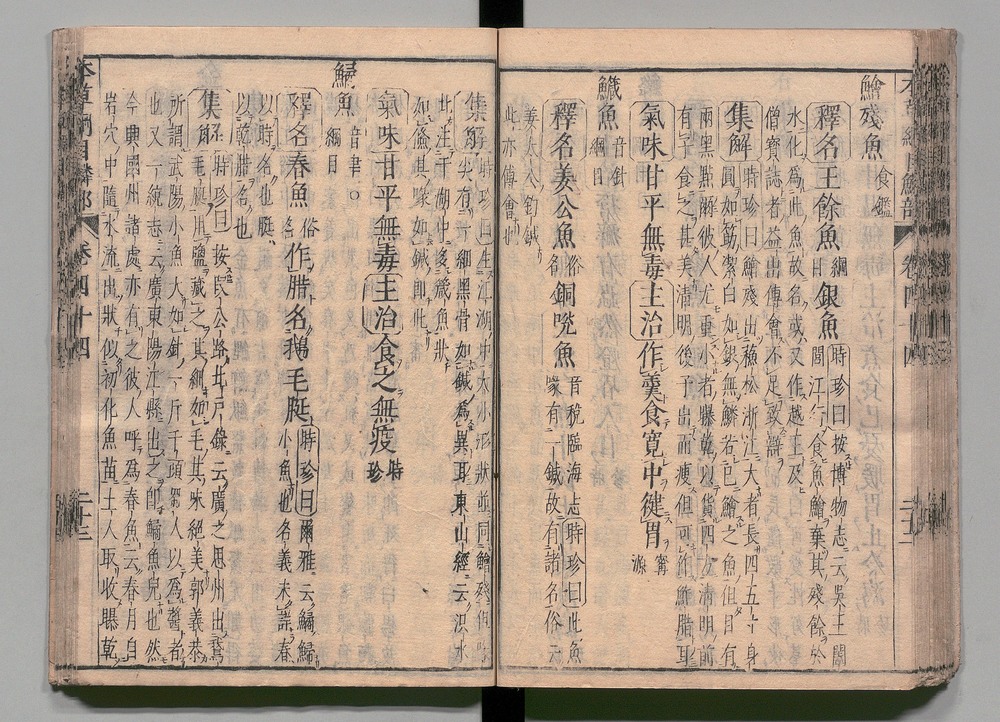 鱠殘魚 食鑑
釋名王餘魚 綱目 銀魚 時珍曰按博物志云吳王闔
閭江行食魚鱠棄其殘餘於
水化為此魚故名或又作越王及
僧寶誌者益出傅會不足致辯
集解 時珍曰鱠殘出蘇松浙江大者長四五寸身
圓如筯潔白如銀無鱗若已鱠之魚但目有
兩黑點爾彼人尤重小者曝乾以貨四方清明前
有子食之甚美清明後子出而瘦但可作鮓腊耳
氣味甘平無毒主治作羹食寬中健胃 甯源
鱵魚 音針 綱目
釋名姜公魚 俗名 銅哾魚 音稅臨海志 時珍曰此魚
喙有一鍼故有諸名俗云
姜太公釣鍼
此亦傅會也
集解 時珍曰生江湖中大小形狀並同鱠殘但喙
尖有一細黑骨如鍼為異耳東山經云㳅水
北注于湖中多箴魚狀
如儵其喙如鍼即此
氣味甘平無毒主治食之無疫 時珍
鱊魚 音聿 綱目
釋名春魚 俗 作腊名鵝毛脡 時珍曰爾雅云鱊鮬
小魚也名義未詳春
以時名也脡
以乾腊名也
集解 時珍曰按段公路北戶錄云廣之恩州出鵝
毛脡用鹽藏之其細如毛其味絕美郭義恭
所謂武陽小魚大如針一斤千頭蜀人以為醬者
也又一統志云廣東陽江縣出之即鱊魚兒也然
今興國州諸處亦有之彼人呼為春魚云春月自
岩穴中隨水流出狀似初化魚苗土人取收曝乾
本草綱目鱗部 卷四十四 二十三